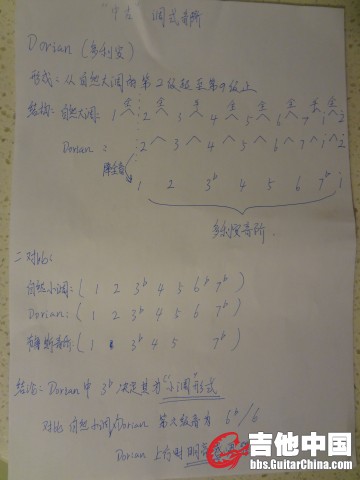 "中古" 调式音阶
Dorian (多利安)
形式: 从自然大调的第2级起至第9级止
全 全 半 全 全 全 半 全
结构: 自然大调: 1 2 3 4 5 6 7 i 2
Dorian: 2 3 4 5 6 7 i 2
降全音
1 2 3b 4 5 6 7b i
多利安音阶.
二 对比:
自然小调: ( 1 2 3b 4 5 6b 7b )
Dorian: ( 1 2 3b 4 5 6 7b )
布鲁斯音阶: ( 1 3b 4 5 7b )
结论: Dorian 中 3b 决定其为 "小调" 形式
对比 自然小调与 Dorian 第六级音为 6b/6
Dorian 上行时 明亮
吉他中国
bbs.GuitarChina.com